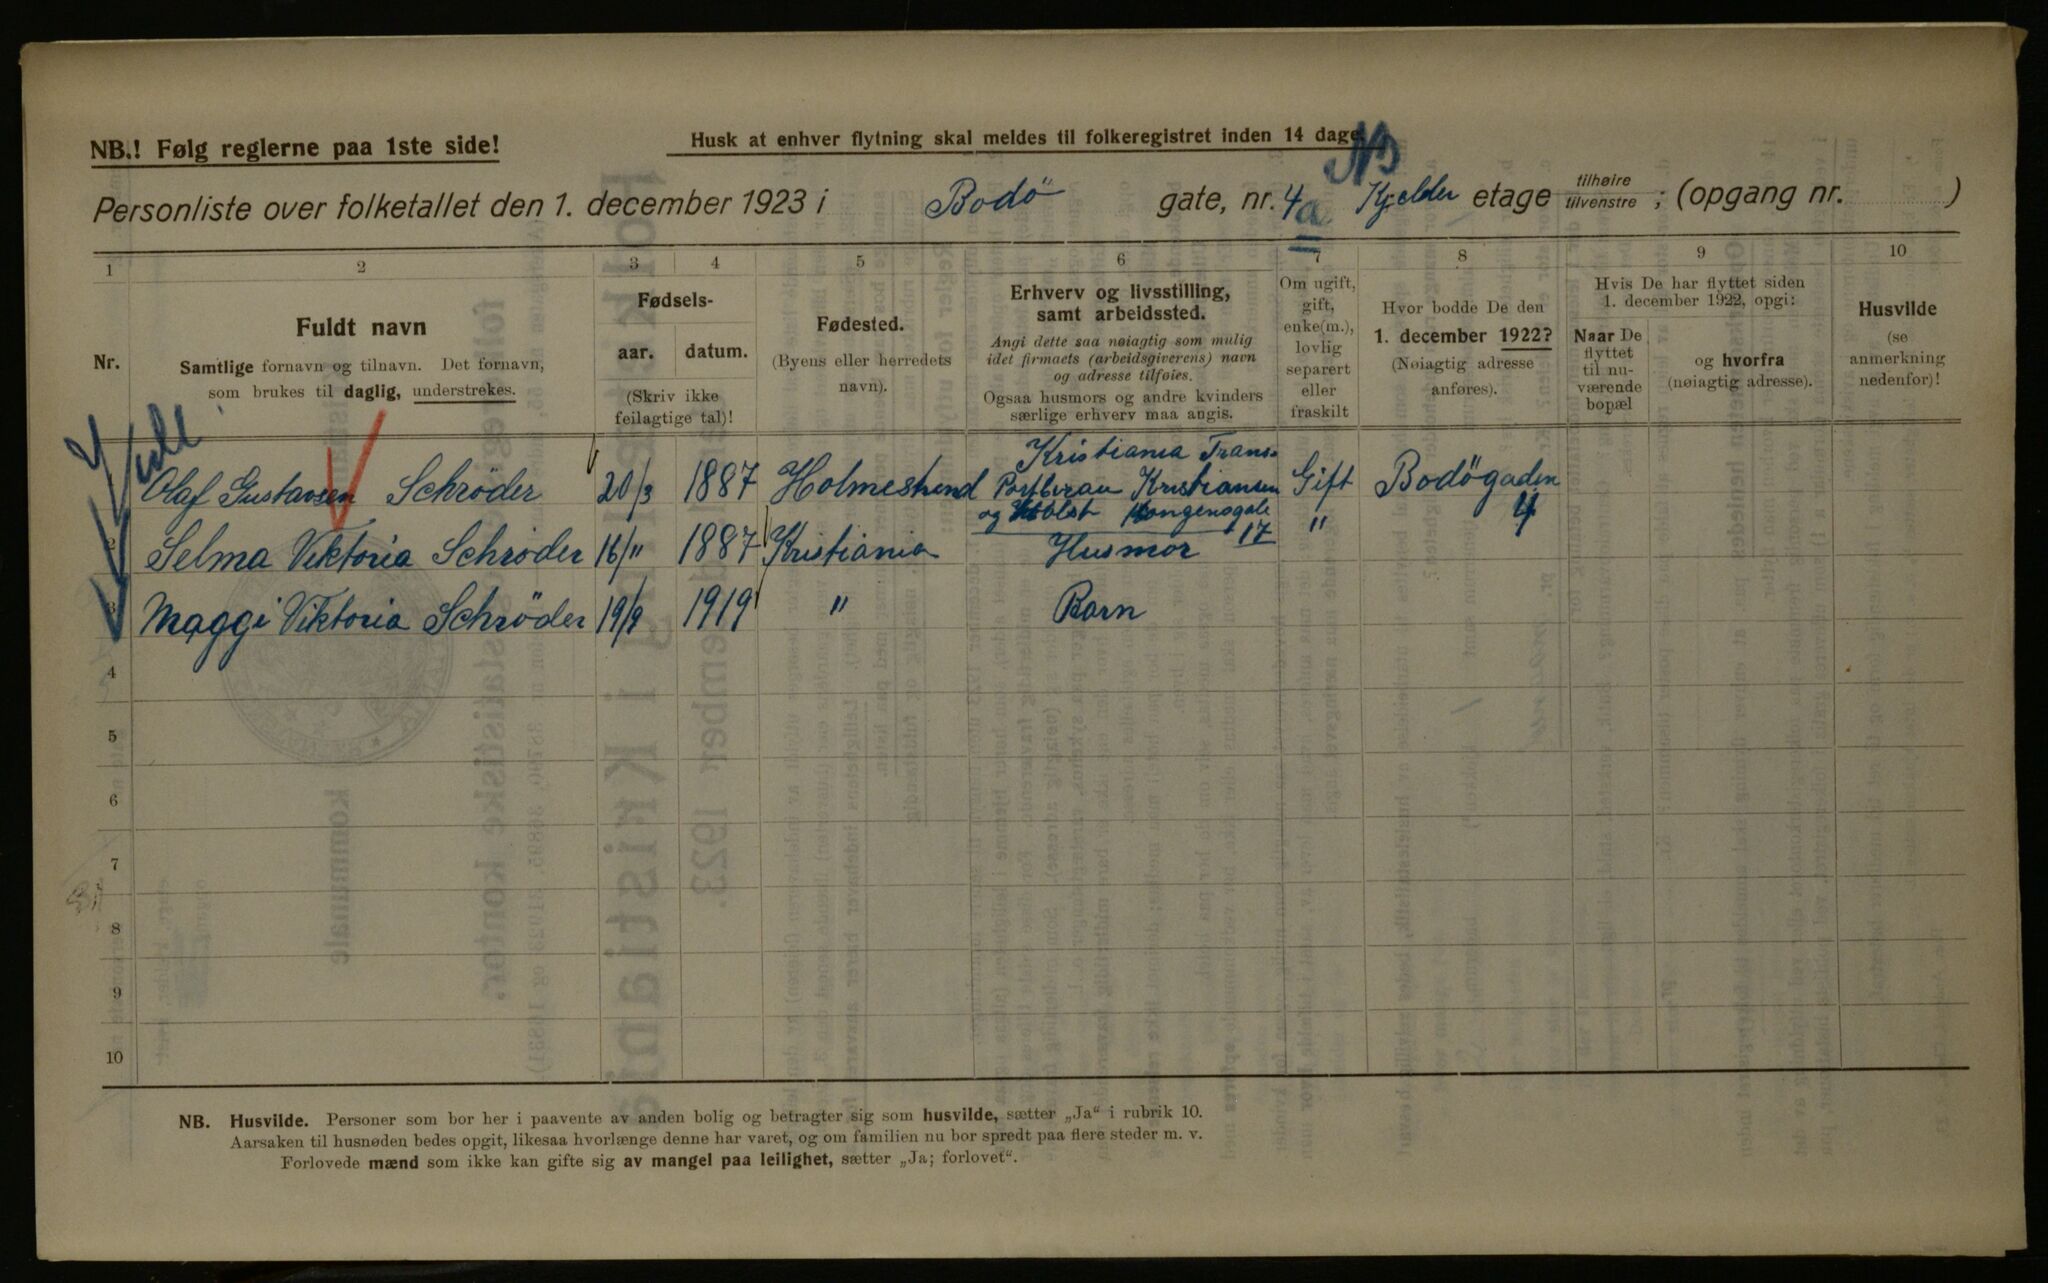 NB.! Følg reglerne paa 1ste side!
Husk at enhver flytning skal meldes til folkeregistret inden 14 dage.
NB
Personliste over folketallet den 1. december 1923 i Bodö gate, nr. 4a Kjelder etage tilhøire tilvenstre ; (opgang nr. )
1 2 3 4 5 6 7 8 9 10
Nr.
Fuldt navn
Samtlige fornavn og tilnavn. Det fornavn,
som brukes til daglig, understrekes.
Fødsels-
aar. datum.
(Skriv ikke
feilagtige tal)!
Fødested.
(Byens eller herredets
navn).
Erhverv og livsstilling,
samt arbeidssted.
Angi dette saa nøiagtig som mulig
idet firmaets (arbeidsgiverens) navn
og adresse tilføies.
Ogsaa husmors og andre kvinders
særlige erhverv maa angis.
Om ugift,
gift,
enke(m.),
lovlig
separert
eller
fraskilt
Hvor bodde De den
1. december 1922?
(Nøiagtig adresse
anføres).
Hvis De har flyttet siden
1. december 1922, opgi:
Naar De
flyttet
til nu-
værende
bopæl
og hvorfra
(nøiagtig adresse).
Husvilde
(se
anmerkning
nedenfor)!
Olaf Gustavsen Schröder 20/3 1887 Holmestrand Kristiania Trans-
Portbirau Kristiansen
og Holst Kongensgate
17 Gift Bodögaden
4
2 Selma Viktoria Schröder 16/11 1887 Kristiania Husmor "
3 Maggi Viktoria Schröder 19/9 1919 " Barn
4
5
6
7
8
9
10
NB. Husvilde. Personer som bor her i paavente av anden bolig og betragter sig som husvilde, sætter „Ja“ i rubrik 10.
Aarsaken til husnøden bedes opgit, likesaa hvorlænge denne har varet, og om familien nu bor spredt paa flere steder m. v.
Forlovede mænd som ikke kan gifte sig av mangel paa leilighet, sætter „Ja; forlovet“.